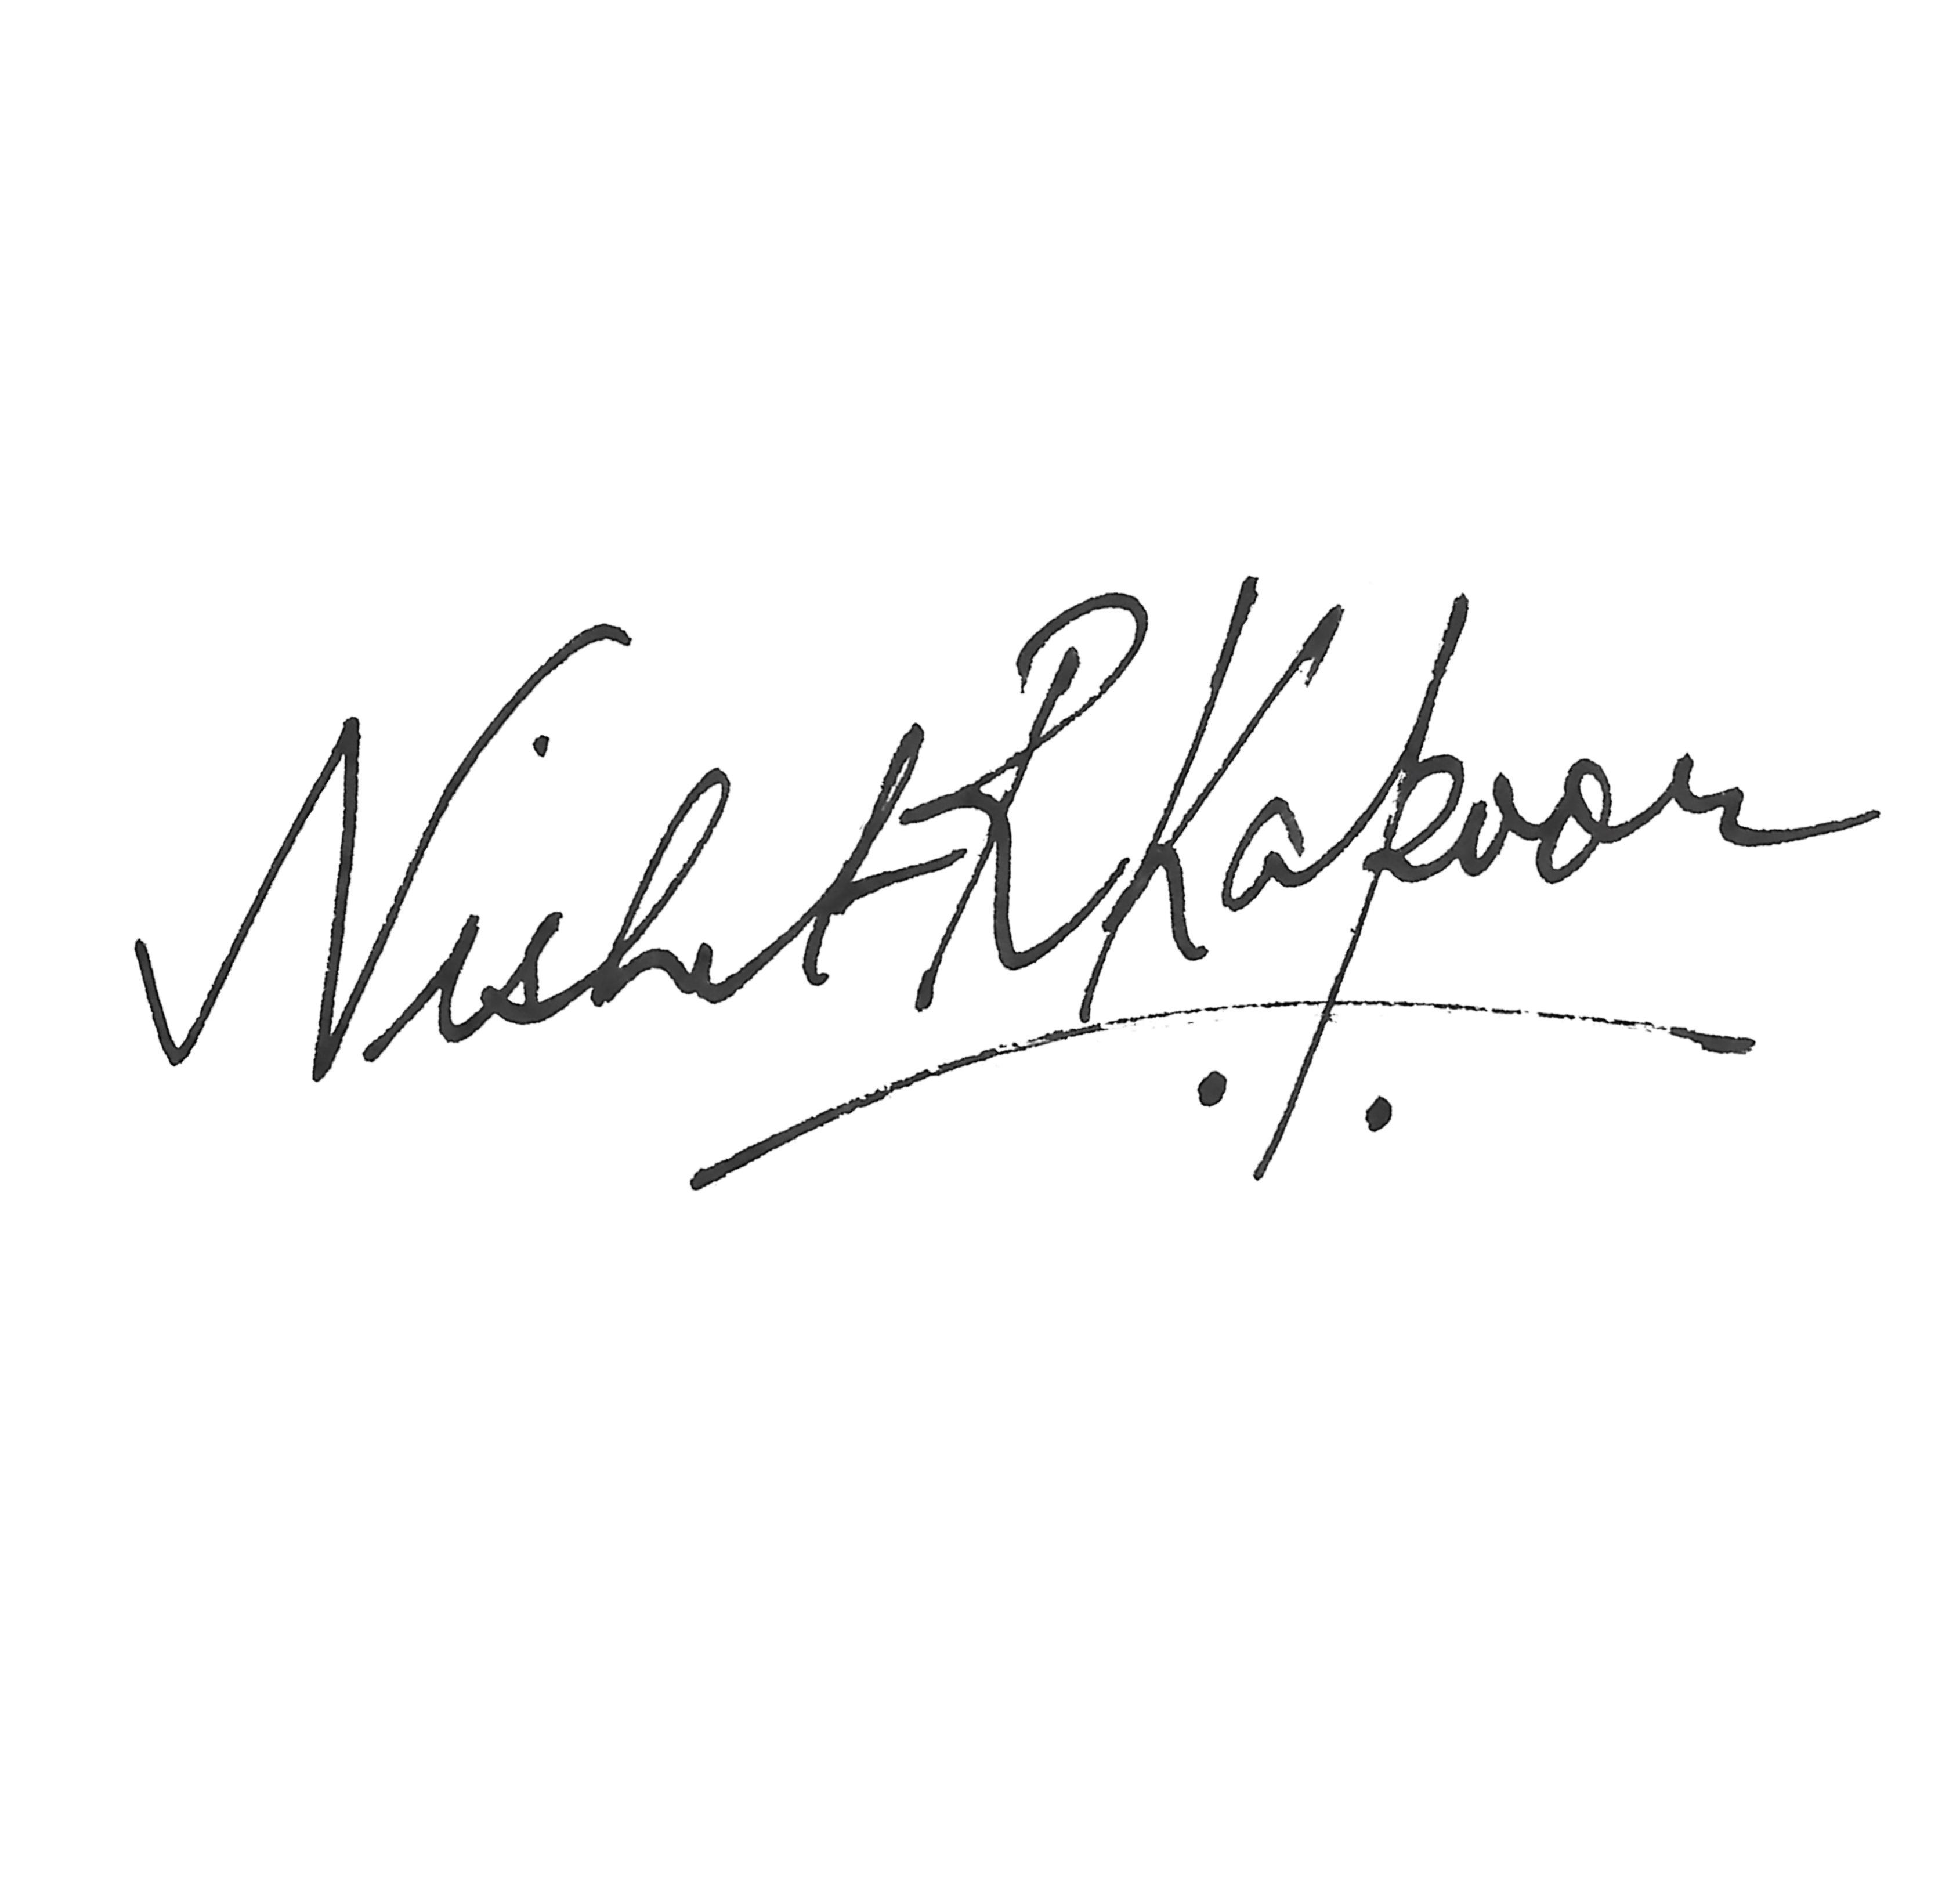 Nishat R Kapoor